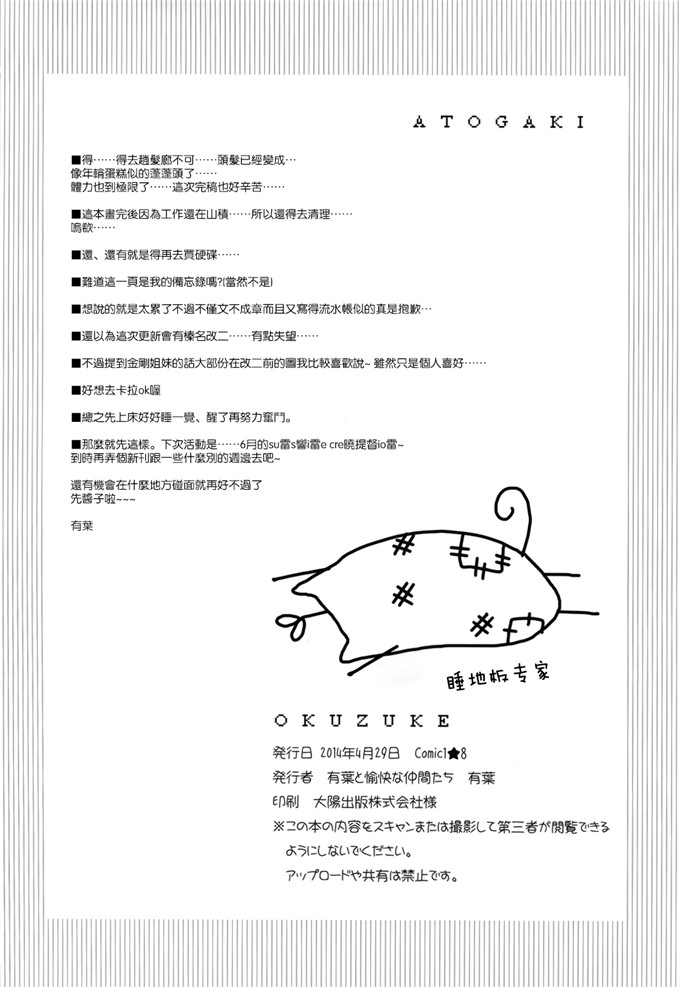 ATOGAKI
■得……得去趟髮廊不可……頭髮已經變成…
像年輪蛋糕似的蓬蓬頭了……
體力也到極限了……這次完稿也好辛苦……
■這本畫完後因為工作還在山積……所以還得去清理……
嗚欸……
■還、還有就是得再去買硬碟……
■難道這一頁是我的備忘錄嗎?(當然不是)
■想說的就是太累了不過不僅文不成章而且又寫得流水帳似的真是抱歉…
■還以為這次更新會有榛名改二……有點失望……
■不過提到金剛姐妹的話大部份在改二前的圖我比較喜歡說~ 雖然只是個人喜好……
■好想去卡拉ok喔
■總之先上床好好睡一覺、醒了再努力奮鬥。
■那麼就先這樣。下次活動是……6月的su雷s響i雷e cre曉提督io雷~
到時再弄個新刊跟一些什麼別的週邊去吧~
還有機會在什麼地方碰面就再好不過了
先醬子啦~~~
有葉
睡地板专家
OKUZUKE
発行日 2014年4月29日 Comic1★8
発行者 有葉と愉快な仲間たち 有葉
印刷 大陽出版株式会社様
※この本の内容をスキャンまたは撮影して第三者が閲覧できる
ようにしないでください。
アップロードや共有は禁止です。